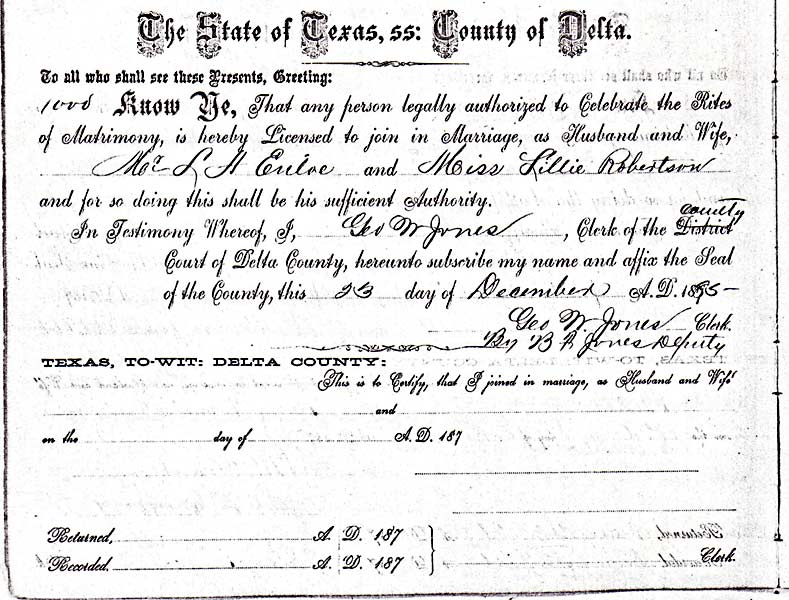 The State of Texas, ss: County of Delta.
To all who shall see these Presents, Greeting:
1008 Know Ye, That any person legally authorized to Celebrate the Rites
of Matrimony, is hereby Licensed to join in Marriage, as Husband and Wife,
Mr L H Enloe and Miss Lillie Robertson
and for so doing this shall be his sufficient Authority.
county
In Testimony Whereof, I, Geo W Jones, Clerk of the District
Court of Delta County, hereunto subscribe my name and affix the Seal
of the County, this 23 day of December A. D. 1885
Geo W. Jones Clerk.
By B R Jones Deputy
TEXAS, TO-WIT: DELTA COUNTY:
This is to Certify, that I joined in marriage, as Husband and Wife
and
on the day of A. D. 187
Returned, A. D. 187
Recorded, A. D. 187 Clerk.